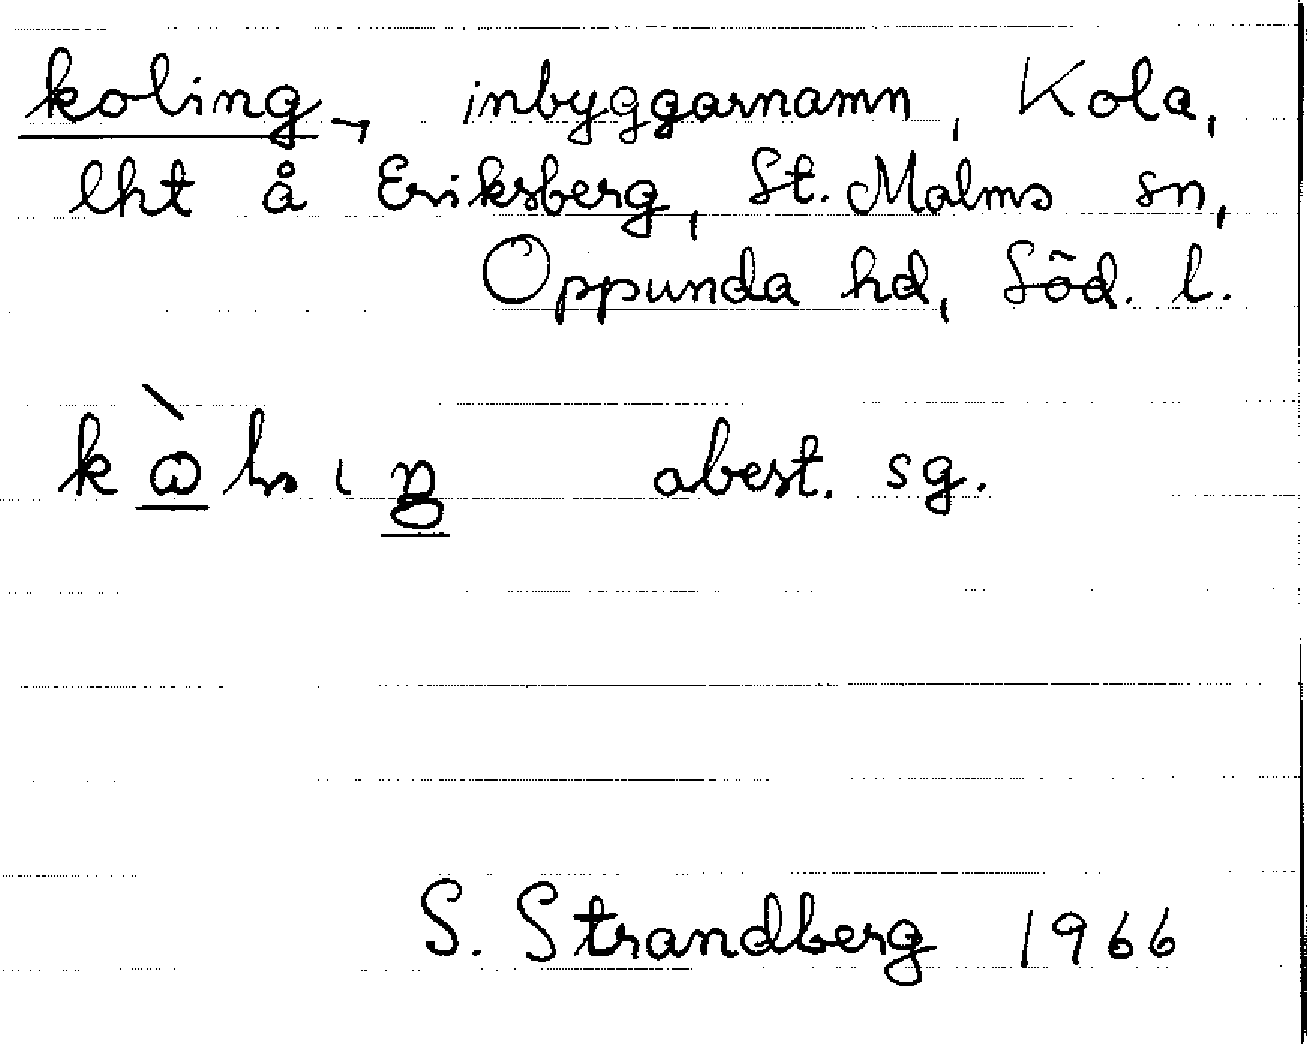 koling, inbyggarnamn, Kola,
lht å Eriksberg, St. Malms sn,
Oppunda hd, Söd. l.
obest. sg.
S. Strandberg 1966